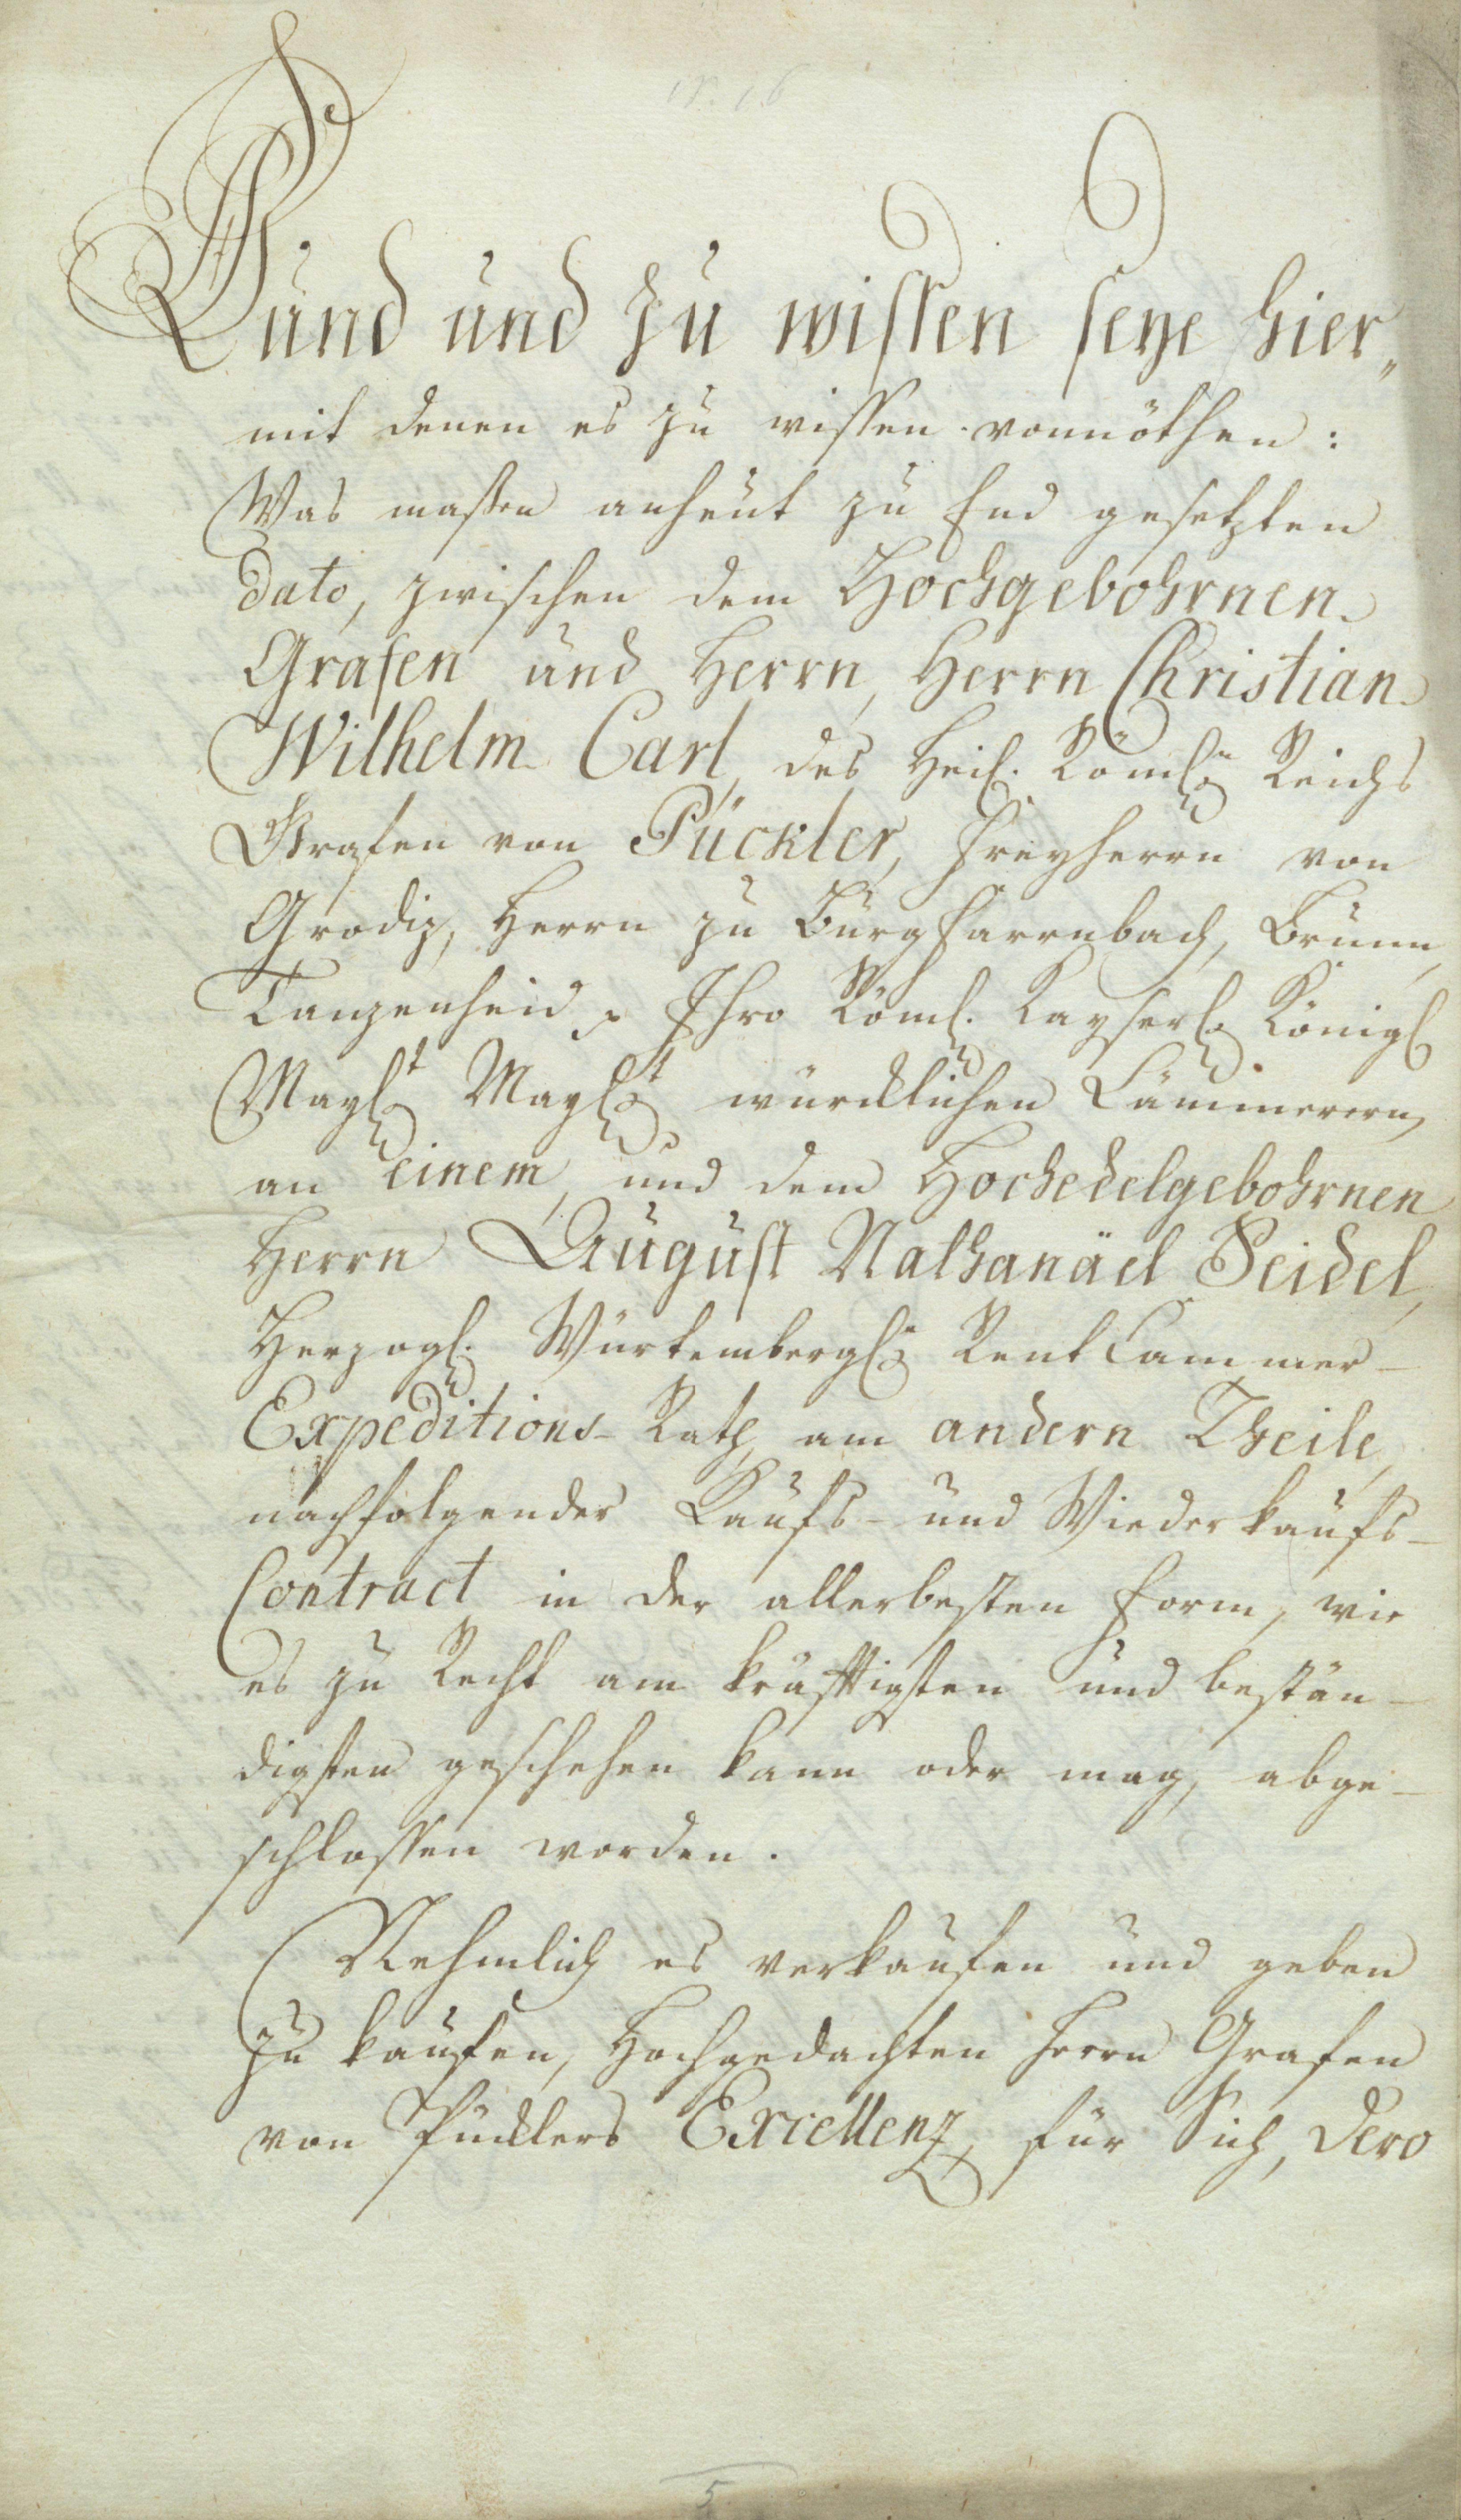 Kund und zu wissen seye hier„
mit denen es zu wissen vonnöthen:
Was maßen anheut zu End gesetzten
dato, zwischen dem Hochgebohrnen
Grafen und Herrn, Herrn Christian
Wilhelm Carl, des Heil. Röml. Reichs
Grafen von Pückler, Freyherrn von
Grodiz, Herrn zu Burgfarrnbach, Brunn,
Tanzenheid, Ihro Röml. Kayserl. Königl
Mayt Mayt würcklichen Cämmerern,
an einem, und dem Hochedelgebohrnen
Herrn August Nathanäel Seidel,
Herzogl. Würtembergl. Rent Cammer-
Expeditions-Rath, am andern Theile,
nachfolgender Kaufs- und Wiederkaufs-
Contract in der allerbesten Form, wie
es zu Recht am kräfftigsten und bestän-
digsten geschehen kann oder mag, abge-
schlossen worden.
Nehmlich es verkaufen und geben
zu kaufen, Hochgedachten Herrn Grafen
von Pücklers Excellenz, für Sich, Dero
5